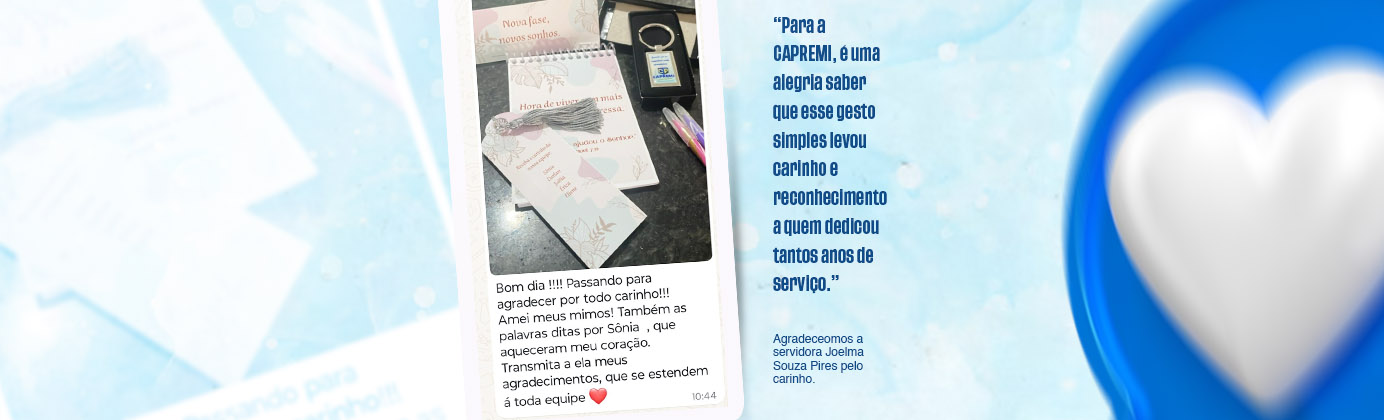 Nova fase,
novos sonhos.
CAPREMI
Hora de viver
mais
Bom dia !!!! Passando para
agradecer por todo carinho!!!
Amei meus mimos! Também as
palavras ditas por Sônia , que
aqueceram meu coração.
Transmita a ela meus
agradecimentos, que se estendem
á toda equipe ❤️
10:44
“Para a
CAPREMI, é uma
alegria saber
que esse gesto
simples levou
carinho e
reconhecimento
a quem dedicou
tantos anos de
serviço.”
Agradeceomos a
servidora Joelma
Souza Pires pelo
carinho.
Passando para